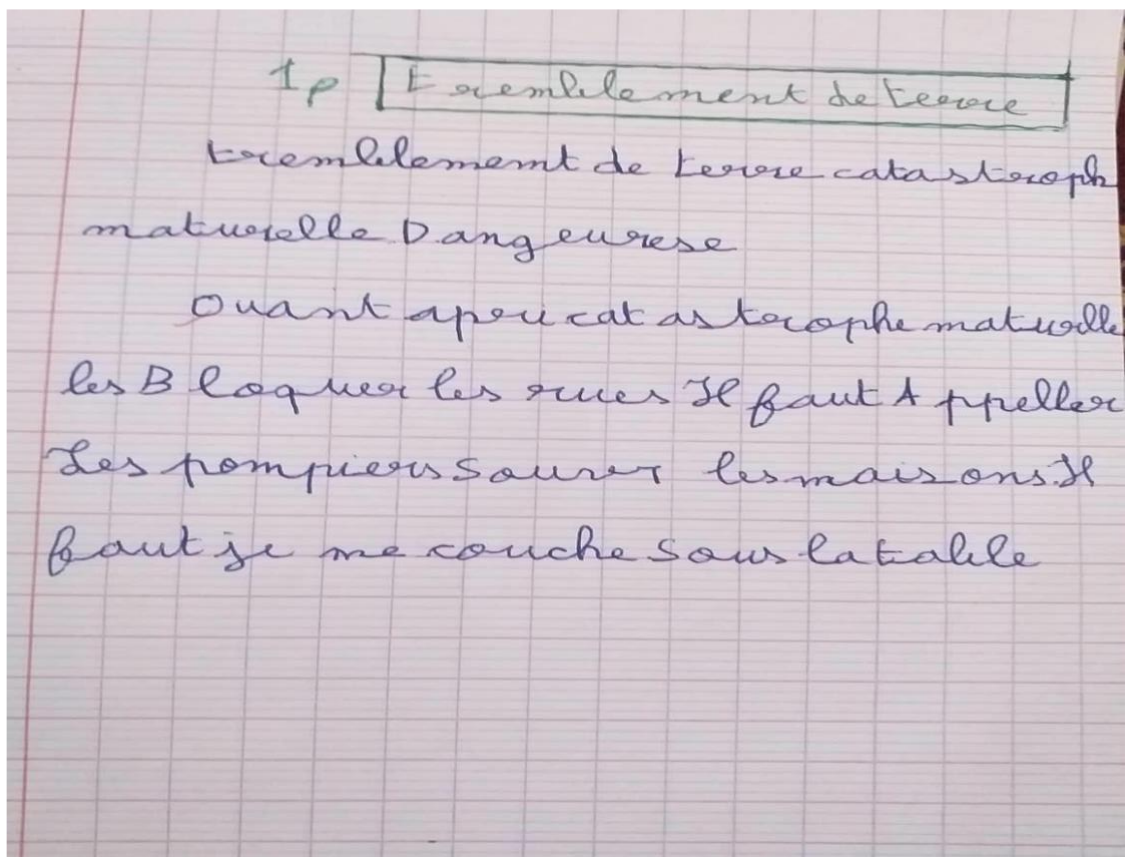 1p tremblement de terre
tremblement de terre catastroph
naturelle Dangeurese
Quant apri catastrophe naturelle
les Bloquer les rues Il faut Appeller
Les pompiers Sauver les maisons. Il
faut je me couche sous la table